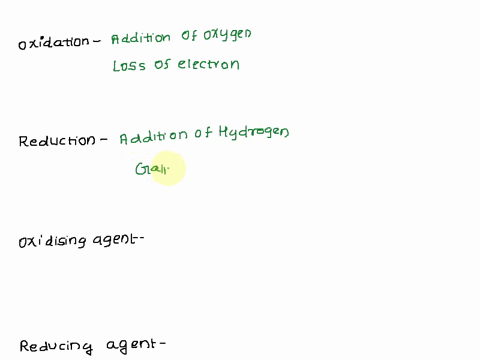 Oxidation - Addition of oxygen
Loss of electron
Reduction - Addition of Hydrogen
Gai
Oxidising agent-
Reducing agent-